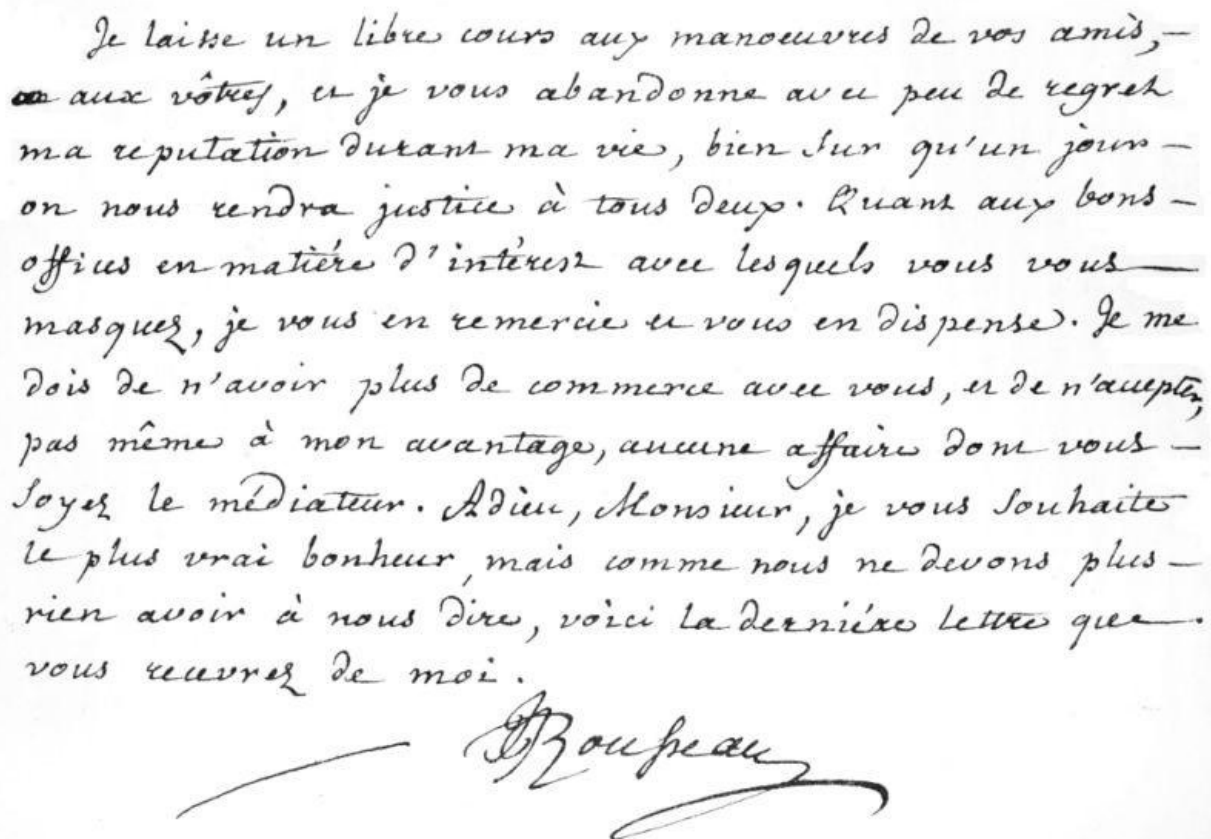 Je laisse un libre cours aux manoeuvres de vos amis,—
aux vôtres, et je vous abandonne avec peu de regret
ma reputation durant ma vie, bien sur qu'un jour—
on nous rendra justice à tous deux. Quant aux bons—
offices en matiére d'intérest avec lesquels vous vous—
masquez, je vous en remercie et vous en dispense. Je me
dois de n'avoir plus de commerce avec vous, et de n'accepter,
pas même à mon avantage, aucune affaire dont vous—
soyez le médiateur. Adieu, Monsieur, je vous souhaite
le plus vrai bonheur, mais comme nous ne devons plus—
rien avoir à nous dire, voici la derniére lettre que—
vous recevrez de moi.
JJRousseau